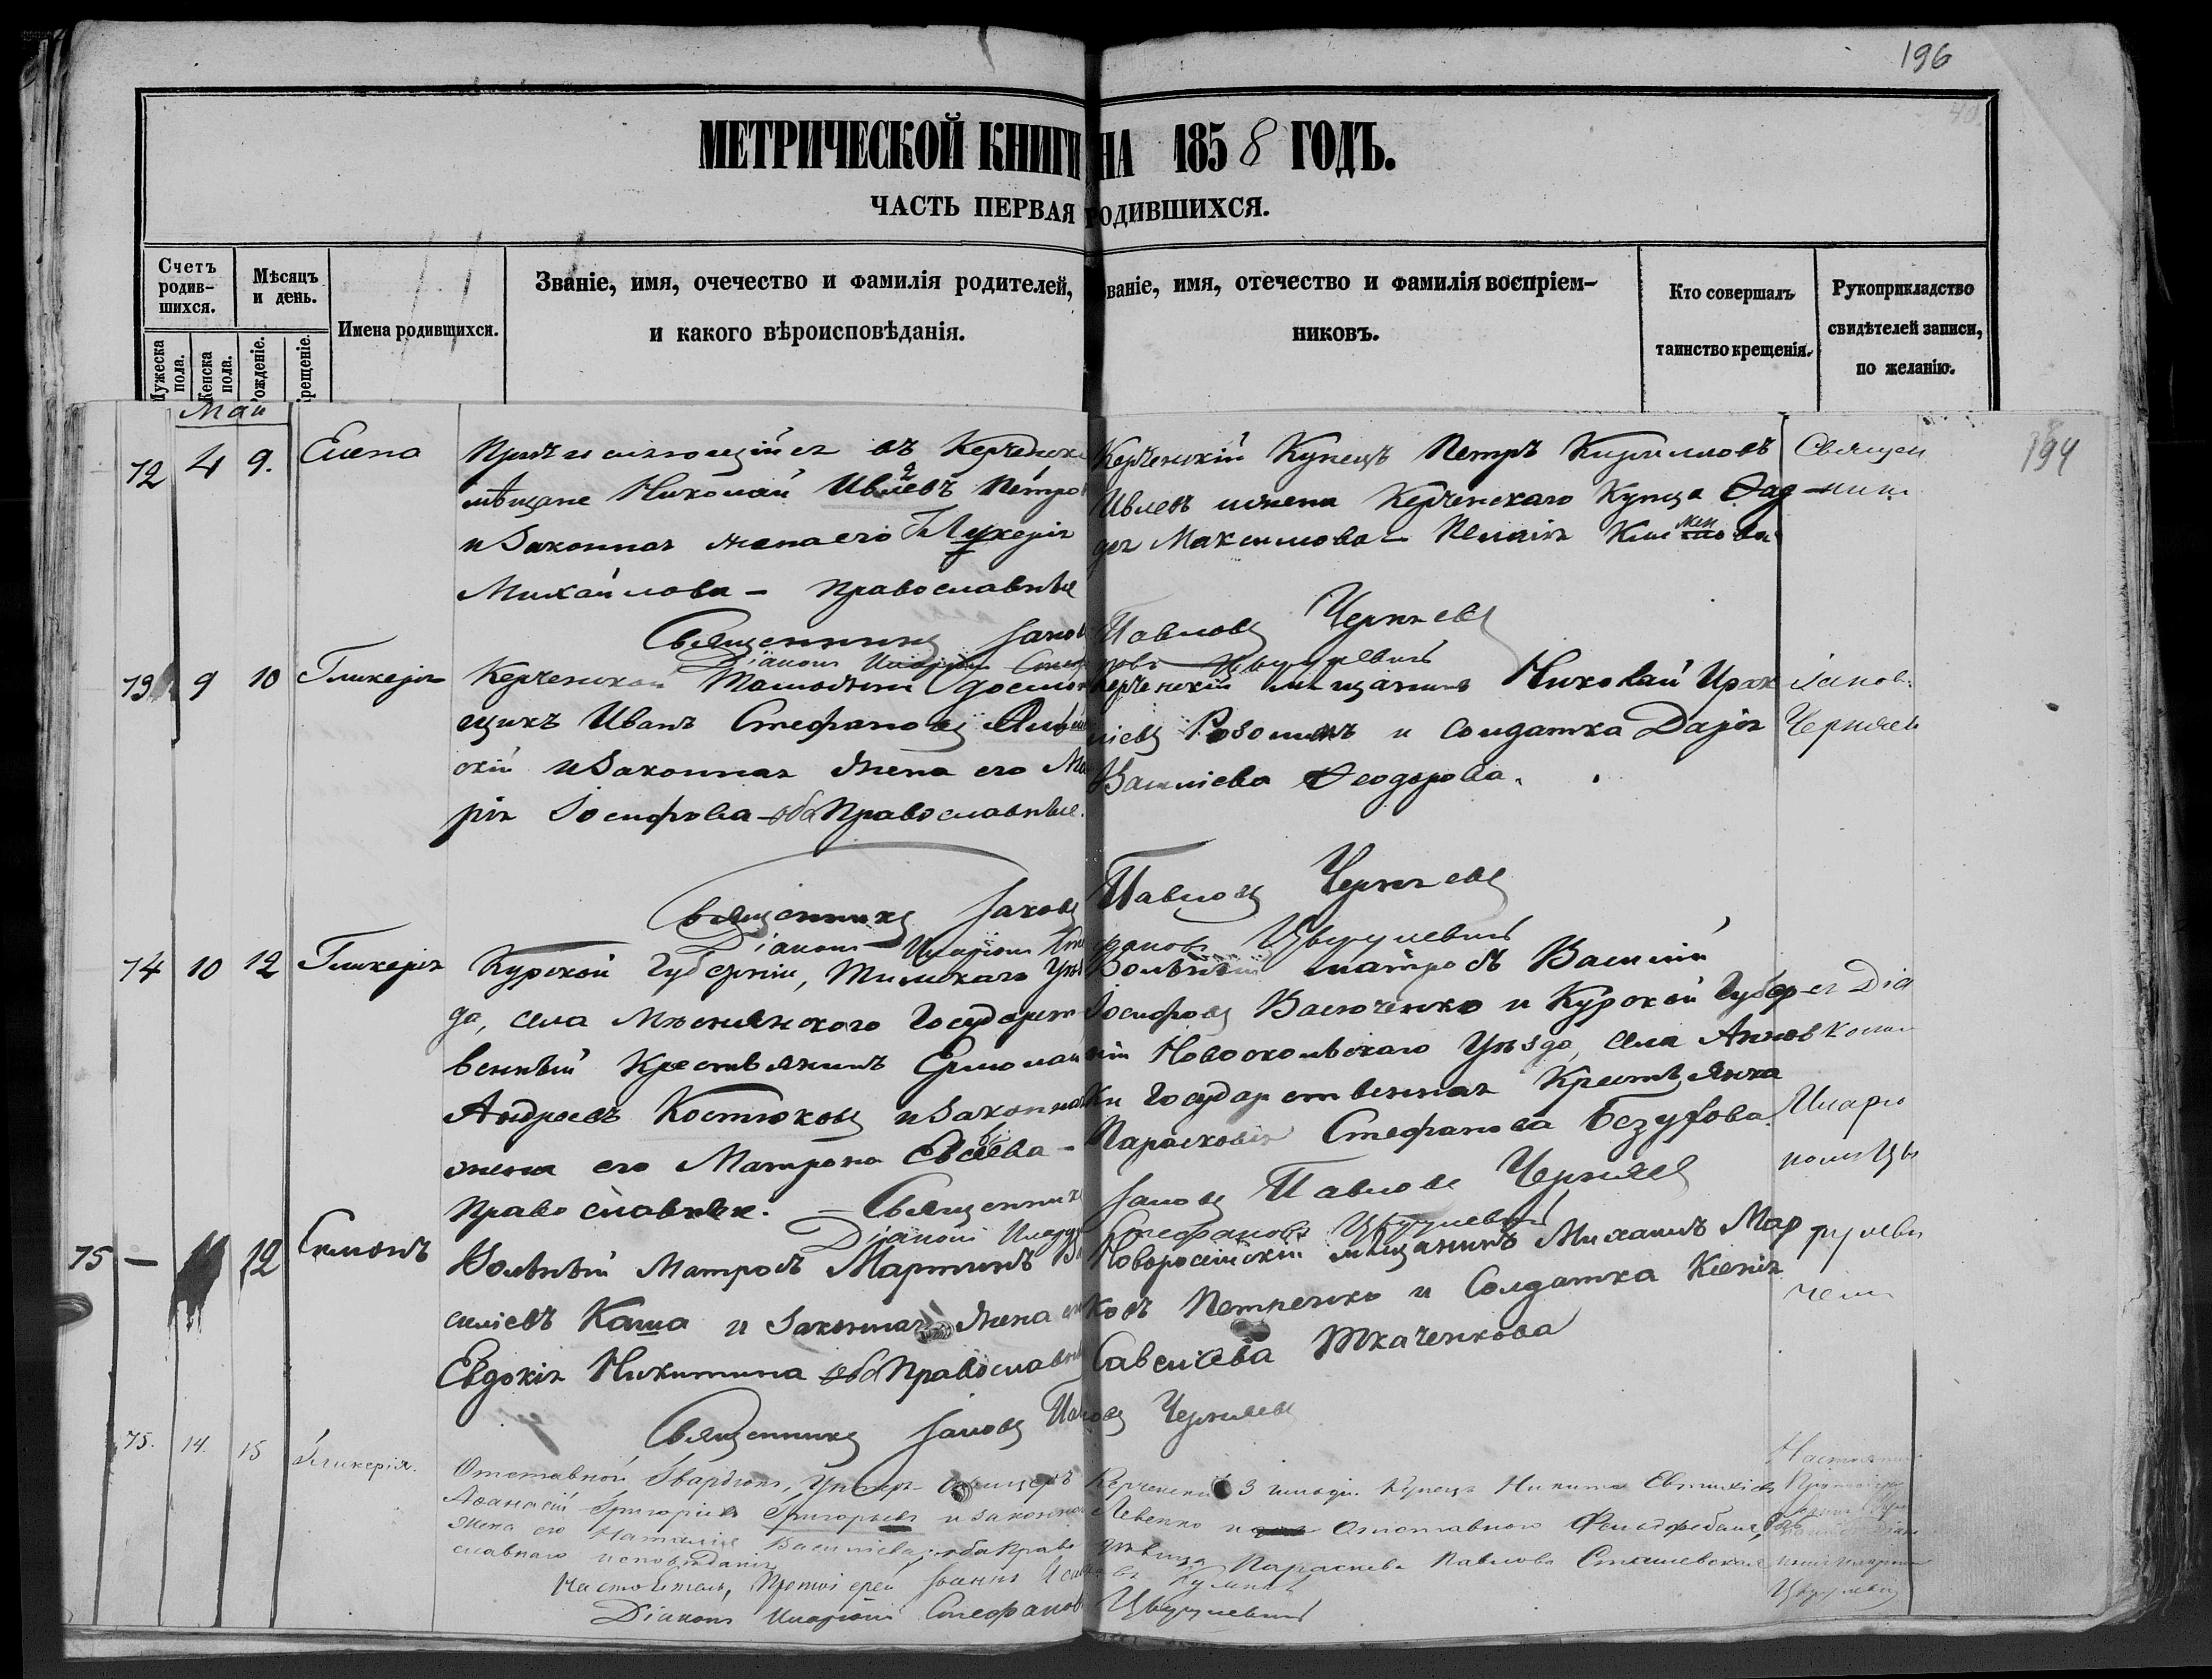 196
МЕТРИЧЕСКОЙ КНИГИ НА 1858 ГОДЪ.
ЧАСТЬ ПЕРВАЯ РОДИВШИХСЯ.
Счетъ родив-шихся.
Мужеска пола.
Женска пола.
Мѣсяцъ и день.
Рожденіе.
Крещеніе.
Имена родившихся.
Званіе, имя, очечество и фамилія родителей,
и какого вѣроисповѣданія.
Званіе, имя, отечество и фамилія воспріем-
никовъ.
Кто совершалъ
таинство крещенія.
Рукоприкладство
свидѣтелей записи,
по желанію.
194
Май
72 4 9. Елена
въ
мѣщане Николай Ивлевъ Петро
и Законная жена его Лукерія
Михайлова - православные
Керченскій Купецъ Петръ Кирилловъ
Ивлевъ и жена Керченскаго Купца Фад
дея Максимова Пелагія
Священ
ник
Священникъ Іаковъ Павловъ Черняевъ
Діаконъ Иларіонъ Стефановъ Цвѣтулевичъ
73 9 10 Гликерія
Керченской Таможни досмотр
щикъ Иванъ Стефановъ
скій и Законная жена его Ма
рія Іосифова оба Православные.
Керченскій мѣщанинъ Николай Ирак
ліевъ и Солдатка Дарія
Василіева Феодорова.
Іаков
Черняев
Священникъ Іаковъ Павловъ Черняевъ
Діаконъ Иларіонъ Стефановъ
74 10 12 Гликерія
Курской Губерніи, Тимскаго Уѣз
да, села Государст
венный Крестьянинъ Ермолай
Андреевъ Костюковъ и Законная
жена его Матрона Евсеева -
Православные.
Вольный матросъ Василій
Іосифовъ Васюченко и Курской Губер
ніи Новооскольскаго Уѣзда, села Аннов
ки Государственная Крестьянка
Парасковія Стефанова Безуглова.
Діа
кон
Иларіо
номъ Цв
Священникъ Іаковъ Павловъ Черняев
Діаконъ Иларіо Стефановъ
75 — 11 12 Симонъ
Вольный Матросъ Мартинъ Ва
силіевъ Каша и Законная жена его
Евдокія Никитина оба Православные
Новоросійскій мѣщанинъ Михаилъ Мар
ковъ Петренко и Солдатка Ксенія
Савеліева Ткаченкова
Священникъ Іаковъ Павловъ Черняевъ
75. 14. 15 Гликерія.
Отставной Гвардіи, Унтер-Офицеръ
Аѳанасій Григоріевъ Григорьевъ и законная
жена его Наталія Василіева, оба Право
славнаго исповѣданія
Керченскій 3 гильдіи Купецъ Никита Евтихіевъ
Левенко и Отставного Фельдфебеля
дѣвица Параскева Павлова Сташевская
Настоятель, Протоіерей Іоаннъ
Діаконъ Иларіонъ Стефанов